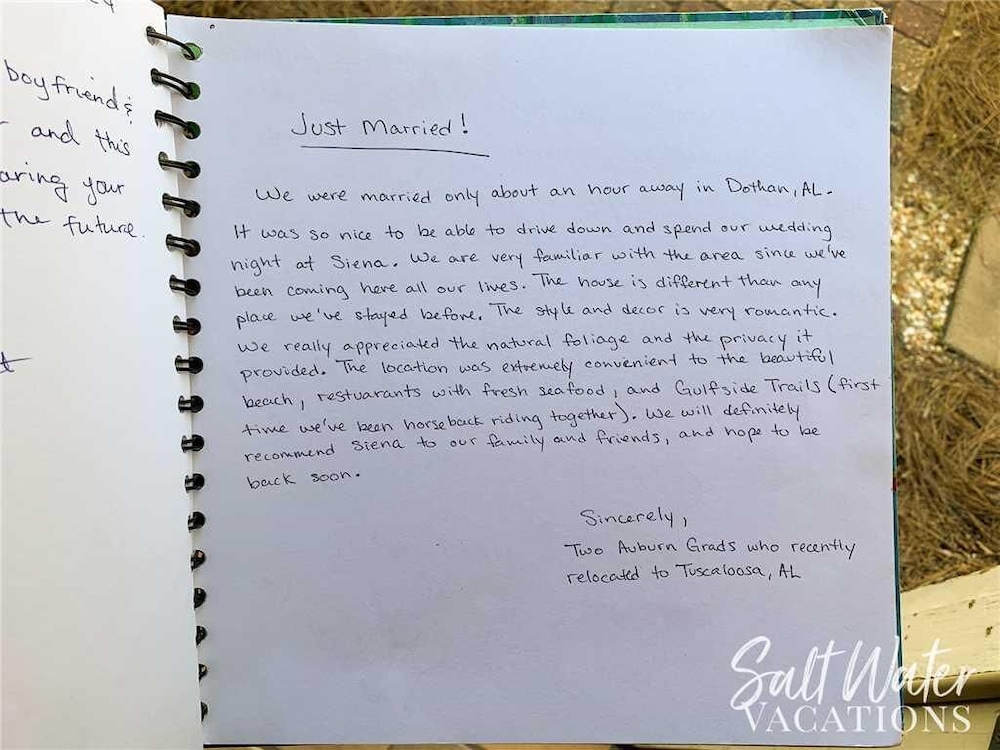 boyfriend &
and this
aring your
the future.
Just Married!
We were married only about an hour away in Dothan, AL.
It was so nice to be able to drive down and spend our wedding
night at Siena. We are very familiar with the area since we've
been coming here all our lives. The house is different than any
place we've stayed before. The style and decor is very romantic.
We really appreciated the natural foliage and the privacy it
provided. The location was extremely convenient to the beautiful
beach, restuarants with fresh seafood, and Gulfside Trails (first
time we've been horseback riding together). We will definitely
recommend Siena to our family and friends, and hope to be
back soon.
Sincerely,
Two Auburn Grads who recently
relocated to Tuscaloosa, AL
Salt Water
VACATIONS